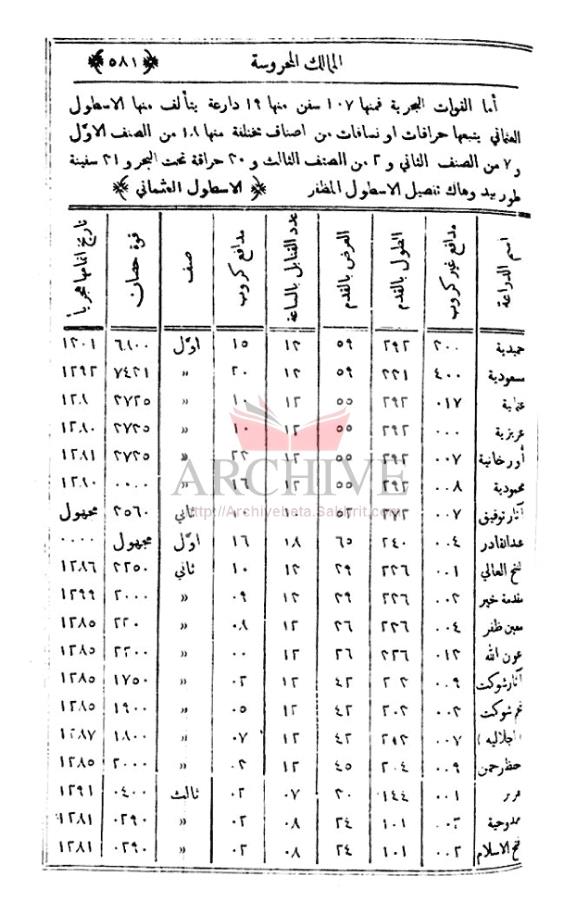 الممالك المحروسة ﴿٥٨١﴾
أما القوات البحرية فمنها ١٠٧ سفن منها ١٩ دارعة يتألف منها الاسطول
العثماني يتبعها حرافات او نسافات من اصناف مختلفة منها ١٠٨ من الصنف الاوّل
و٧ من الصنف الثاني و٢ من الصنف الثالث و٢٠ حراقة تحت البحر و٢١ سفينة
طوربيد وهاك تفصيل الاسطول المظفر ﴿ الاسطول العثماني ﴾
اسم الدراعة مدافع غير كروب الطول بالقدم العرض بالقدم عدد القنابل بالساعة مدافع كروب صنف قوة حصان تاريخ اتمامها هجرياً
حميدية ٢٠٠ ٢٩٢ ٥٩ ١٢ ١٥ اوّل ٦٨٠٠ ١٣٠١
سعودية ٤٠٠ ٢٢١ ٥٩ ١٢ ٢٠ " ٧٤٢١ ١٢٩٢
٠١٧ ٢٩٢ ٥٥ ١٢ ١٠ " ٢٧٢٥ ١٢٨٠
عزيزية ٠٠٠ ٢٩٢ ٥٥ ١٢ ١٠ " ٢٧٢٥ ١٢٨٠
أورخانية ٠٠٧ ٢٩٢ ٥٥ ١٢ ٢٢ " ٢٧٢٥ ١٢٨١
محمودية ٠٠٨ ٢٩٢ ٥٥ ١٢ ١٦ " ٠٠٠٠ ١٢٨٠
آثار توفيق ٠٠٧ ٢٧٢ ٥٢ ١٠ ثاني ٢٥٦٠ مجهول
عبدالقادر ٠٠٤ ٢٤٠ ٦٥ ١٨ ١٦ اوّل مجهول ٠٠٠٠
فتح العالي ٠٠١ ٢٢٦ ٢٩ ١٢ ١٠ ثاني ٢٢٥٠ ١٢٨٦
مقدمة خير ٠٠٢ ٢٢٦ ٢٩ ١٢ ٠٩ " ٢٠٠٠ ١٢٩٩
معين ظفر ٠٠٤ ٢٢٦ ٢٦ ١٢ ٠٨ " ٢٢٠ ١٢٨٥
عون الله ٠١٢ ٢٢٦ ٢٦ ١٢ ٠٠ " ٢٢٠٠ ١٢٨٥
آثار شوكت ٠٠٩ ٢٠٢ ٤٢ ١٢ ٠٢ " ١٧٥٠ ١٢٨٥
نجم شوكت ٠٠٢ ٢٠٢ ٤٢ ١٢ ٠٥ " ١٩٠٠ ١٢٨٥
اجلاليه ٠٠٧ ٢٩٢ ٤٢ ١٢ ٠٧ " ١٨٠٠ ١٢٨٧
حفظ رحمن ٠٠٩ ٢٠٤ ٤٥ ١٢ ٠٢ " ٢٠٠٠ ١٢٨٥
٠٠١ ١٤٤ ٢٠ ٠٧ ٠٢ ثالث ٠٤٠٠ ١٢٩١
ممدوحية ٠٠٢ ١٠١ ٢٤ ٠٨ ٠٢ " ٠٢٩٠ ١٢٨١
فتح الاسلام ٠٠٢ ١٠١ ٢٤ ٠٨ ٠٢ " ٠٢٩٠ ١٢٨١
ARCHIVE
http://Archivebeta.Sakhrit.com